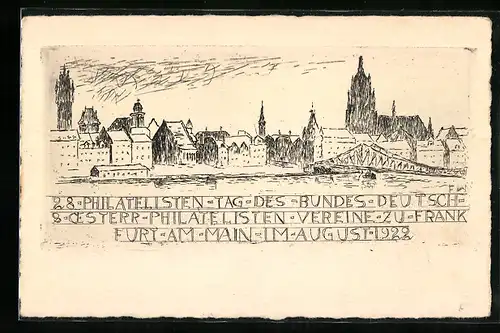 28·PHILATELISTEN·TAG·DES·BUNDES·DEUTSCH·
&·ŒSTERR·PHILATELISTEN·VEREINE·ZU·FRANK
FURT·AM·MAIN·IM·AUGUST·1922